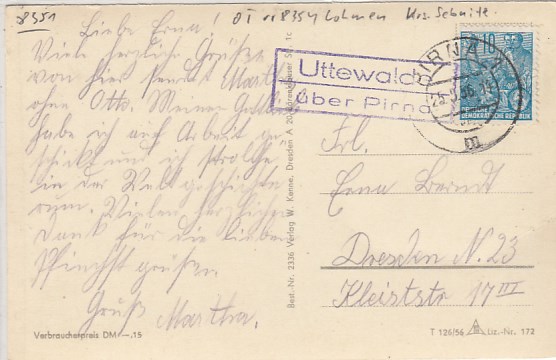 8351
OT v 8354 Lohmen Krs. Sebnitz.
Liebe Erna!
Viele herzliche Grüße
von hier sendet Martha
ohne Otto. Meinen
habe ich auf Arbeit ge-
schickt und ich strolche
in der Weltgeschichte
rum. Vielen herzlichen
Dank für die lieben
Pfingstgrüße.
Gruß
Martha.
Verbraucherpreis DM –.15
Best.-Nr. 2336 Verlag W. Kenne, Dresden A 20
1c
Uttewalde
über Pirna
PIRNA
25.5.56
m
10
DEUTSCHE DEMOKRATISCHE REPUBLIK
Frl.
Erna Berndt
Dresden N. 23
Kleiststr 17 III
T 126/56
Liz.-Nr. 172